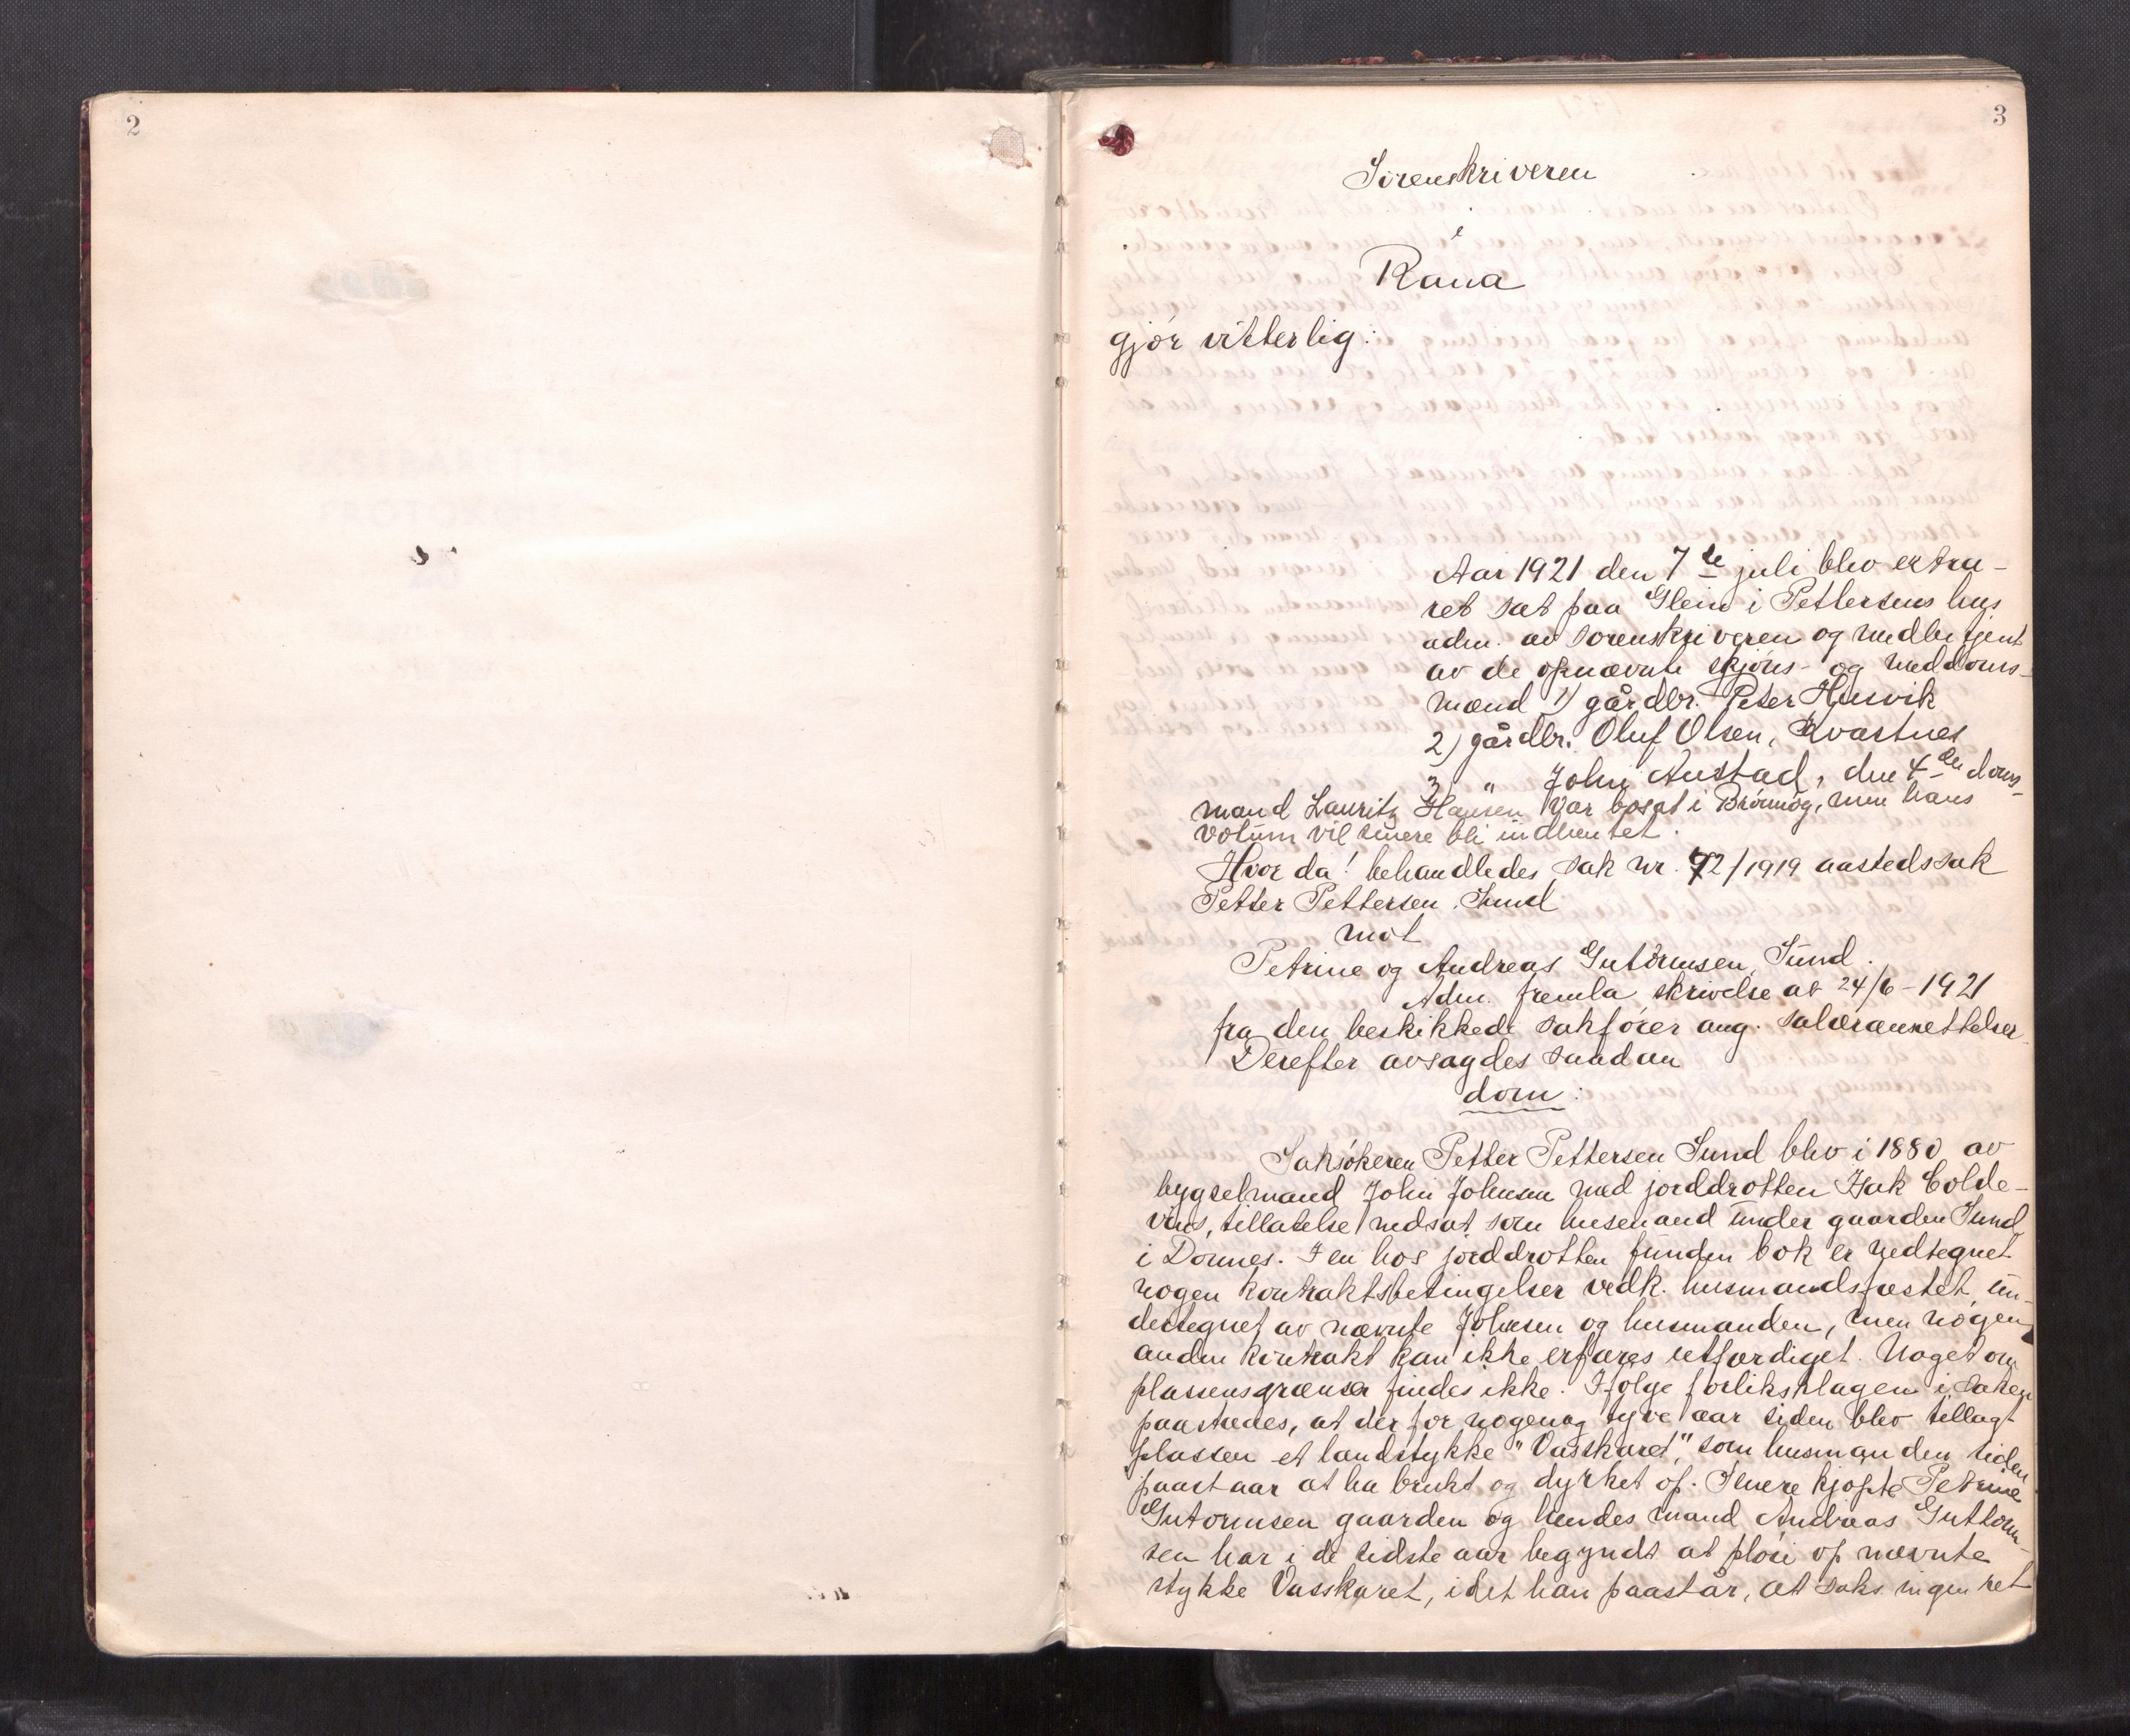 2
3
Sorenskriveren
i
Rana
gjør vitterlig:
Aar 1921 den 7de juli blev extra-
ret sat paa Glein i Pettersens hus
adm. av sorenskriveren og medbetjent
av de opnævnte skjøns- og meddoms-
mænd 1) gårdbr. Peter Husvik
2) gårdbr. Oluf Olsen, Kvastnes
3 " John Austad, den 4de doms-
mand Lauritz Hansen var bosat i Brønnøy, men hans
votum vil senere bli indhentet.
Hvor da! behandledes sak nr. 72/1919 aastedssak
Petter Pettersen Sund
mot
Petrine og Andreas Gutormsen, Sund.
Adm. fremla skrivelse av 24/6-1921
fra den beskikkede sakfører ang. salæransettelser
Derefter avsagdes saadan
dom:
Saksøkeren Petter Pettersen Sund blev i 1880 av
bygselmand John Johnsen med jorddrotten Isak Colde-
vins, tillatelse indsat som husmand under gaarden Sund
i Dønnes. I en hos jorddrotten funden bok er nedtegnet
nogen kontraktsbetingelser vedk. husmandsfæstet un-
dertegnet av nævnte Johnsen og husmanden, men nogen
anden kontrakt kan ikke erfares utfærdiget. Noget om
plassens grænser findes ikke. Ifølge forliksklagen i saken
paastaaes, at der for nogenog tyve aar siden blev tillagt
plassen et landstykke "Vasskaret", som husmanden siden
paastaar at ha brukt og dyrket op. Senere kjøpte Petrine
Gutormsen gaarden og hendes mand Andreas Guttorm-
sen har i de sidste aar begyndt at pløie op nævnte
stykke Vasskaret, idet han paastår, at saks. ingen ret